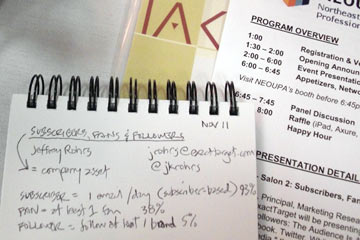 NEOU
Northeast
Professio
PROGRAM OVERVIEW
1:00 Registration & V
1:30 – 2:00 Opening Announ
2:00 – 6:00 Event Presentati
6:00 – 6:45 Appetizers, Netw
Visit NEOUPA's booth before 6:45p
6:45 – 7:45 Panel Discussion
8:00 Raffle (iPad, Axure,
Happy Hour
PRESENTATION DETAIL
Salon 2: Subscribers, Fan
Principal, Marketing Resea
ExactTarget will be presenti
llowers: The Audience is
ebook, Twitter,
Nov 11
SUBSCRIBERS, FANS & FOLLOWERS
Jeffrey Rohrs jrohrs@exacttarget.com
@jkrohrs
= company asset
SUBSCRIBER = 1 email / day (subscriber-based) 93%
FAN = at least 1 fan 38%
FOLLOWER = follow at least 1 brand 5%